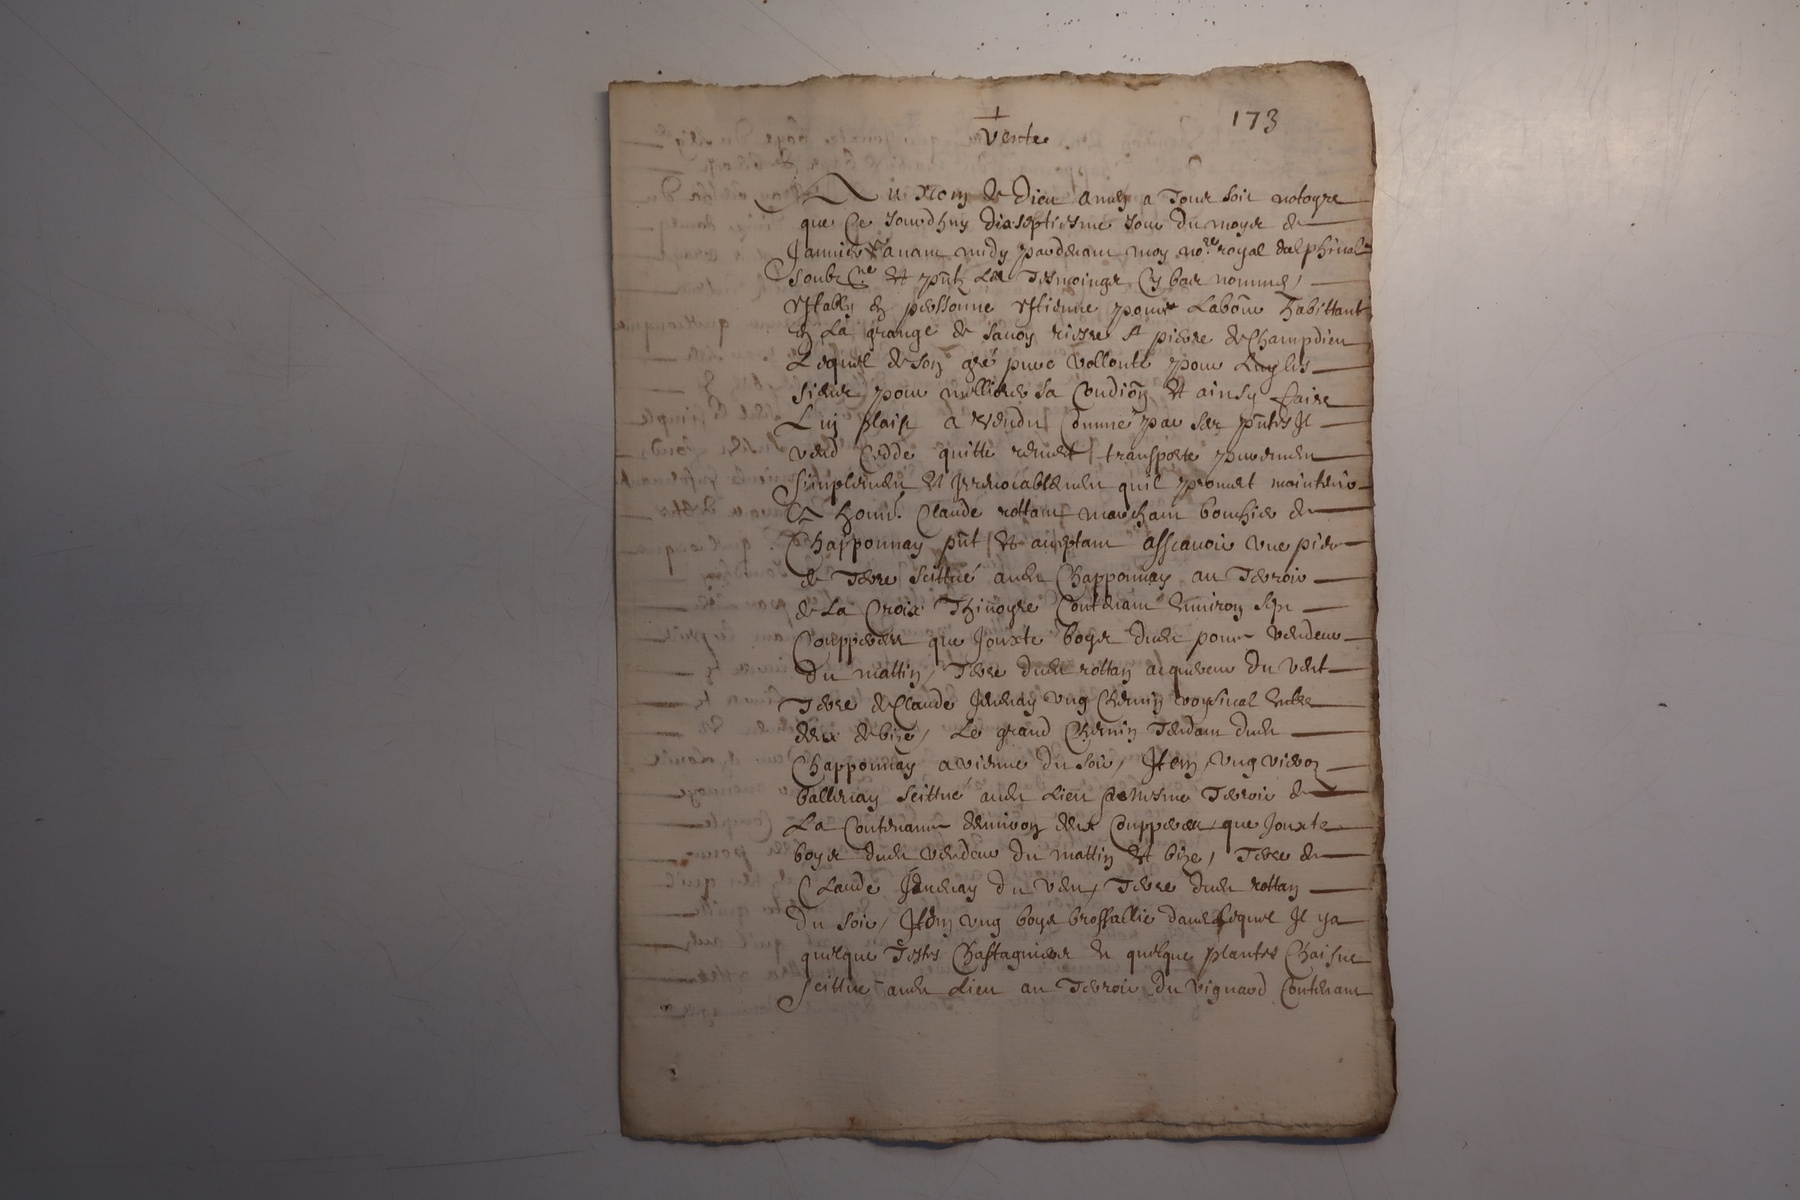 173
+
Vente
Au Nom de Dieu amen a Tous soit notoyre
que Ce Jourdhuy dixseptiesme Jour du moys de
Janvier avant midy pardevant moy no.re royal dalphinal
soubz.ne et pntz Les Tesmoings Cy bas nommes /
estably en personne estienne Labome habittant
en La grange de Savoy riesre St pierre de Champdieu
Lequel de son gré pure vollonte pour Luy les
siens pour mellieure sa Condiōn et ainsy faire
Luy plaist a vendu Comme par ses pntes Il
vend Cedde quitte remet transporte purement
simplement et Irrevocablement quil promet maintenir
A hon.e Claude rottan marchant bouchier de
Chapponnay pnt et aceptant assavoir une piece
de Terre scittué aud Chapponnay au Terroir
de La Croix Contenant environ sept
Coupperees que Jouxte boys dud vendeur
du mattin, Terre dud rottan acquereur du vent
Terre de Claude Jannay ung Chemin voysinal entre
deux de bize, Le grand Chemin Tendant dud
Chapponnay a vienne du soir, Item ung
scittué aud Lieu et mesme Terroir de
La Contenance denviron deux Coupperees que Jouxte
boys dud vendeur du mattin et bize, Terre de
Claude du vent, Terre dud rottan
du soir, Item ung boys brossallie dans Lequel Il ya
quelque Testes Chastagniers et quelque plantes Chaisne
scittué aud Lieu au Terroir du vignard Contenant